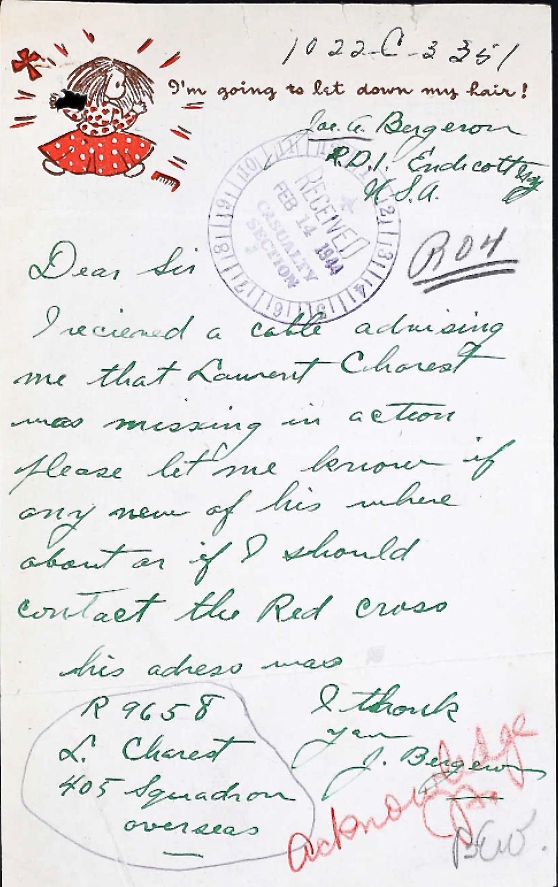 1022-C-3351
I'm going to let down my hair!
Joe. A. Bergeron
R.D.1. Endicott NY
U.S.A.
RECEIVED
FEB 14 1944
CASUALTY
SECTION
R04
Dear Sir
I recieved a cable advising
me that Laurent Charest
was missing in action
please let me know if
any new of his where
about or if I should
contact the Red cross
his adress was
R 9658
L. Charest
405 Squadron
overseas
I thank
you
J. Bergeron
Acknowledge